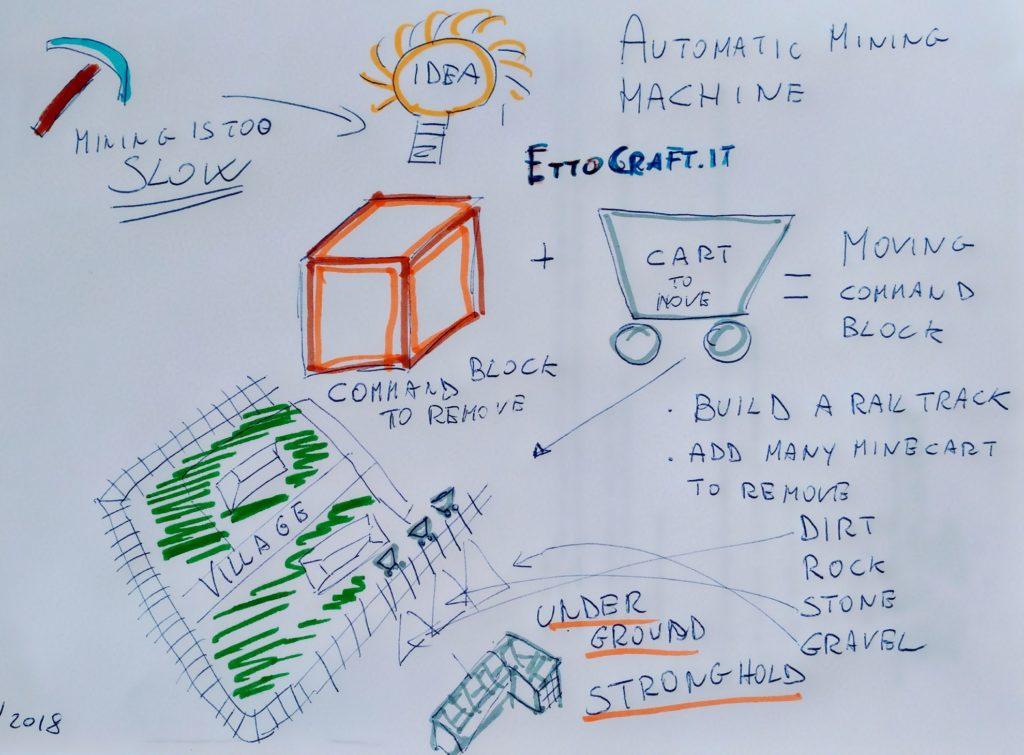 MINING IS TOO
SLOW
IDEA
AUTOMATIC MINING
MACHINE
ETTOCRAFT.IT
COMMAND BLOCK
TO REMOVE
+
CART
TO
MOVE
=
MOVING
COMMAND
BLOCK
. BUILD A RAIL TRACK
. ADD MANY MINECART
TO REMOVE
DIRT
ROCK
STONE
GRAVEL
VILLAGE
UNDER
GROUND
STRONGHOLD
/2018